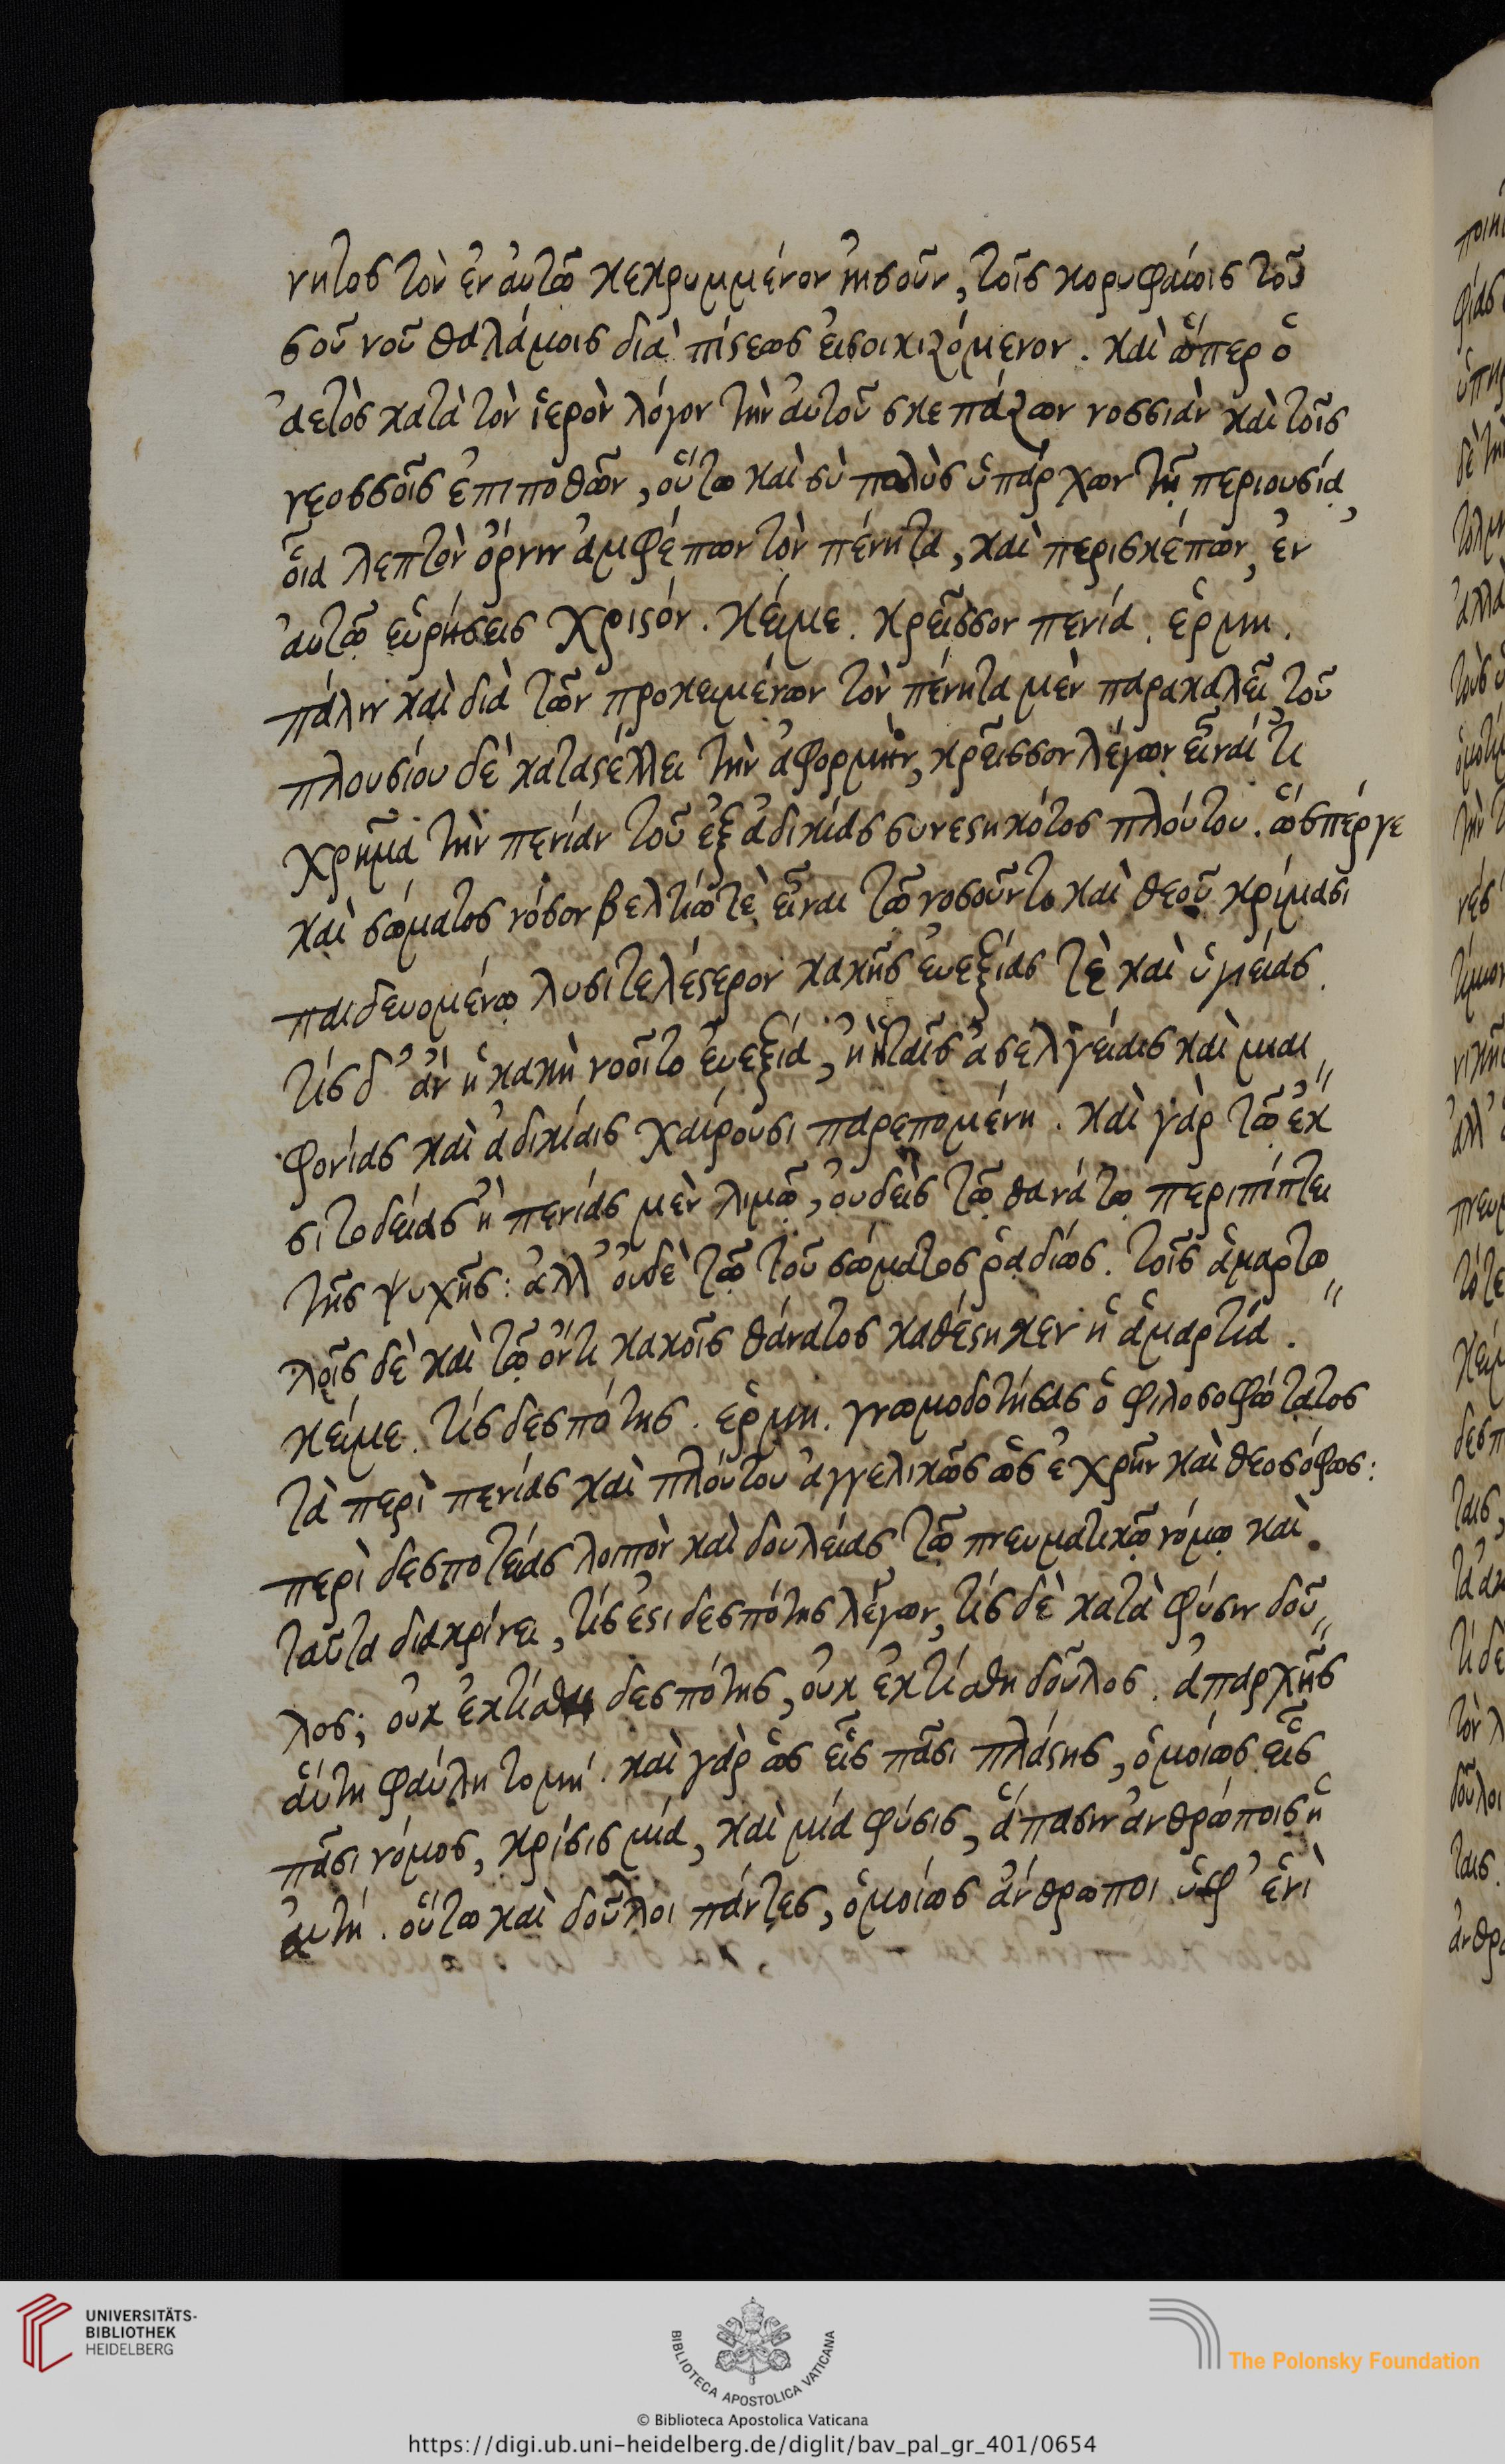 νητος τὸν ἐν αὐτῶ κεκρυμμένον ἰησοῦν, τοῖς κορυφαίοις τοῦ
σοῦ νοῦ θαλάμοις διὰ πίστεως εἰσοικιζόμενον. καὶ ὥσπερ ὁ
ἀετὸς κατὰ τὸν ἱερὸν λόγον τὴν αὑτοῦ σκεπάζων νοσσιὰν καὶ τοῖς
νεοσσοῖς ἐπιποθῶν, οὕτω καὶ σὺ πολὺς ὑπάρχων τῇ περιουσίᾳ
οἷα λεπτὸν ὄρνιν ἀμφέπων τὸν πένητα, καὶ περισκέπων, ἐν
αὐτῷ εὑρήσεις χριστόν. κείμε. κρεῖσσον πενία. ἑρμη.
πάλιν καὶ διὰ τῶν προκειμένων τὸν πένητα μὲν παρακαλεῖ, τοῦ
πλουσίου δὲ καταστέλλει τὴν ἀφορμὴν, κρεῖσσον λέγων εἶναί τι
χρῆμα τὴν πενίαν τοῦ ἐξ ἀδικίας συνεστηκότος πλούτου. ὥσπέργε
καὶ σώματος νόσον βελτίω τὲ εἶναι τῶ νοσοῦντι καὶ θεοῦ κρίμασι
παιδευομένῳ λυσιτελέστερον κακῆς εὐεξίας τὲ καὶ ὑγιείας.
τίς δ' ἂν ἡ κακὴ νοοῖτο εὐεξία, ἢ ἡ ταῖς ἀσελγείαις καὶ μιαι
φονίαις καὶ ἀδικίαις χαίρουσι παρεπομένη. καὶ γὰρ τῷ ἐκ
σιτοδείας ἢ πενίας μὲν λιμῷ, οὐδεὶς τῷ θανάτῳ περιπίπτει
τῆς ψυχῆς: ἀλλ' οὐδὲ τῷ τοῦ σώματος ῥαδίως. τοῖς ἁμαρτω
λοῖς δὲ καὶ τῷ ὄντι κακοῖς θάνατος καθέστηκεν ἡ ἁμαρτία.
κείμε. τίς δεσπότης. ἑρμη. γνωμοδοτήσας ὁ φιλοσοφώτατος
τὰ περὶ πενίας καὶ πλούτου ἀγγελικῶς ὡς ἐχρῆν καὶ θεοσόφως:
περὶ δεσποτείας λοιπὸν καὶ δουλείας τῷ πνευματικῷ νόμῳ καὶ
ταῦτα διακρίνει, τίς ἐστι δεσπότης λέγων, τίς δὲ κατὰ φύσιν δοῦ
λος; οὐκ ἐκτίσθη δεσπότης, οὐκ ἐκτίσθη δοῦλος. ἀπαρχῆς
αὕτη φαύλη τομή. καὶ γὰρ ὡς εἷς πᾶσι πλάστης, ὁμοίως εἷς
πᾶσι νόμος, κρίσις μία, καὶ μία φύσις, ἅπασιν ἀνθρώποις ἡ
αὐτή. οὕτω καὶ δοῦλοι πάντες, ὁμοίως ἄνθρωποι ὑφ' ἑνὶ
UNIVERSITÄTS-
BIBLIOTHEK
HEIDELBERG
BIBLIOTECA APOSTOLICA VATICANA
The Polonsky Foundation
© Biblioteca Apostolica Vaticana
https://digi.ub.uni-heidelberg.de/diglit/bav_pal_gr_401/0654